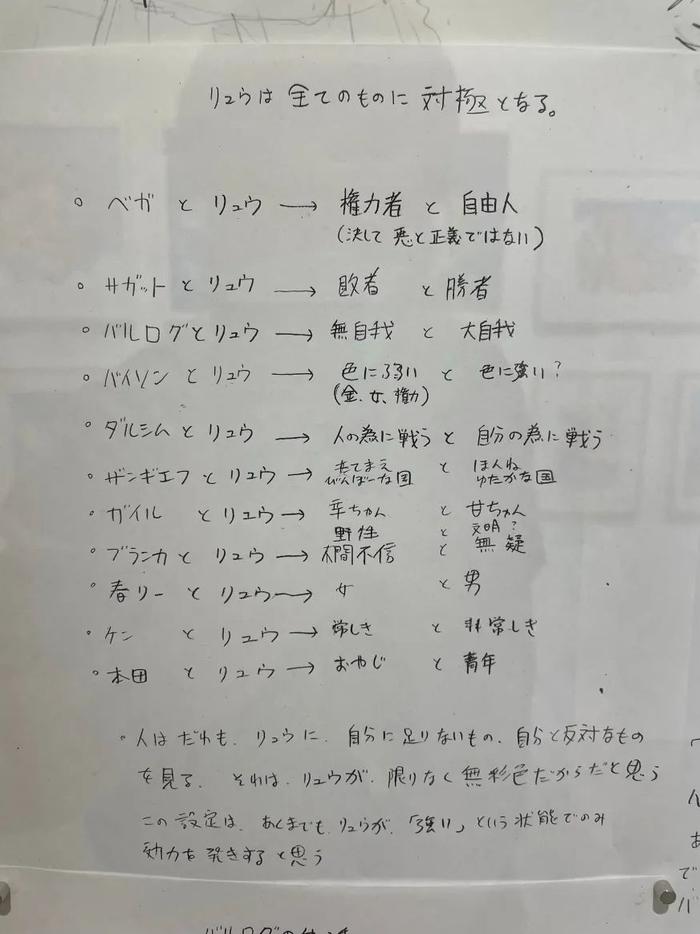 リュウは 全てのものに 対極となる。
○ ベガ と リュウ → 権力者 と 自由人
(決して 悪と正義ではない)
○ サガット と リュウ → 敗者 と 勝者
○ バルログ と リュウ → 無自我 と 大自我
○ バイソン と リュウ → 色に弱い と 色に強い?
(金、女、権力)
○ ダルシム と リュウ → 人の為に戦う と 自分の為に戦う
○ ザンギエフ と リュウ → たてまえ と ほんね
びんぼーな国 ゆたかな国
○ ガイル と リュウ → 辛ちゃん と 甘ちゃん
野性 と 文明?
○ ブランカ と リュウ → 人間不信 と 無疑
○ 春リー と リュウ → 女 と 男
○ ケン と リュウ → 常しき と 非常しき
○ 本田 と リュウ → おやじ と 青年
○ 人は だれも、リュウに、自分に足りないもの、自分と反対なもの
を見る。それは、リュウが、限りなく 無彩色だからだと思う
この設定は、あくまでも、リュウが、「強い」という状態でのみ
効力を発きすると思う
バルログの